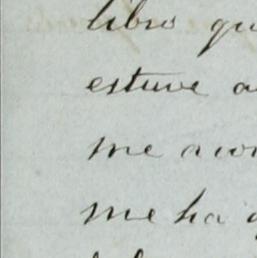 libro qu
estuve a
me acon
me ha q